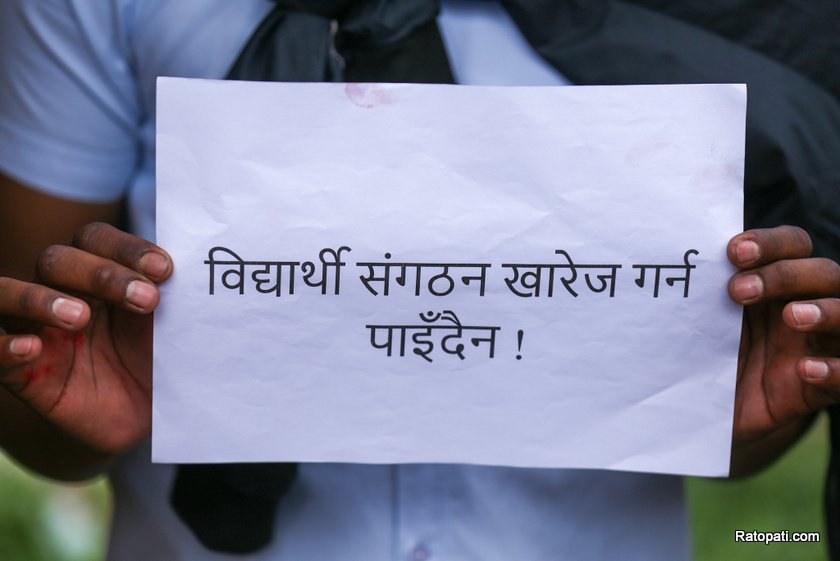 विद्यार्थी संगठन खारेज गर्न
पाइँदैन !
Ratopati.com